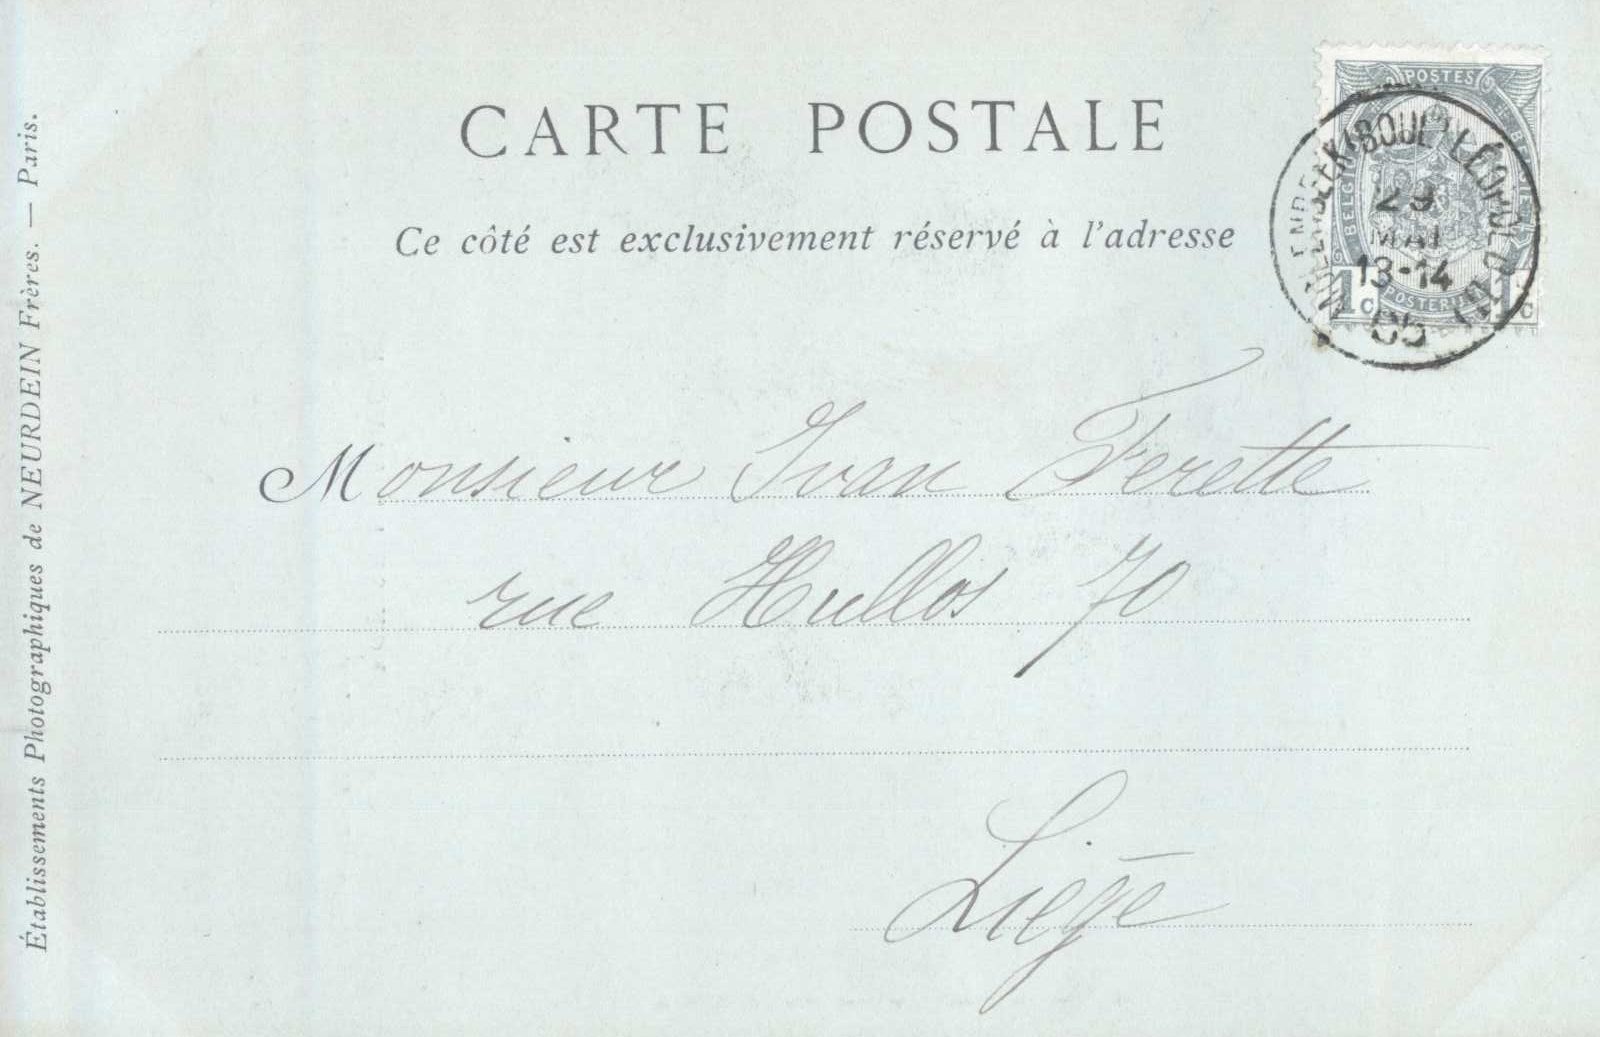 CARTE POSTALE
Ce côté est exclusivement réservé à l'adresse
Monsieur Ivan Ferette
rue Hullos 70
Liége
Établissements Photographiques de NEURDEIN Frères. — Paris.
POSTES
BELGIQUE
1 c
1 c
29
MAI
13-14
05